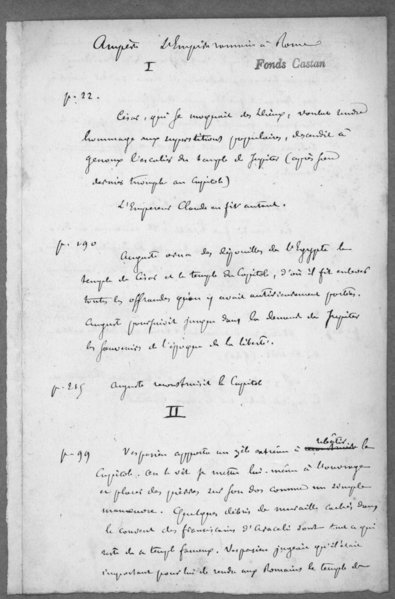 Ampère L'Empire romain à Rome
I
Fonds Castan
p. 22.
César, qui se moquait des Dieux, voulut rendre
hommage aux superstitions populaires, descendit à
genoux l'escalier du temple de Jupiter (après son
dernier triomphe au Capitole)
L'Empereur Claude en fit autant.
p. 190
Auguste orna des dépouilles de l'Egypte le
temple de César et le temple du Capitole, d'où il fit enlever
toutes les offrandes qu'on y avait antérieurement portées.
Auguste poursuivait jusque dans la demeure de Jupiter
les souvenirs de l'époque de la liberté.
p. 215 Auguste reconstruisit le Capitole
II
p. 99 Vespasien apporta un zèle extrême à rebâtir le
Capitole. On le vit se mettre lui-même à l'ouvrage
et placer des pierres sur son dos comme un simple
manœuvre. Quelques débris de muraille cachés dans
le couvent des franciscains d'Araceli sont tout ce qui
reste de ce temple fameux. Vespasien jugeait qu'il était
important pour lui de rendre aux Romains le temple de